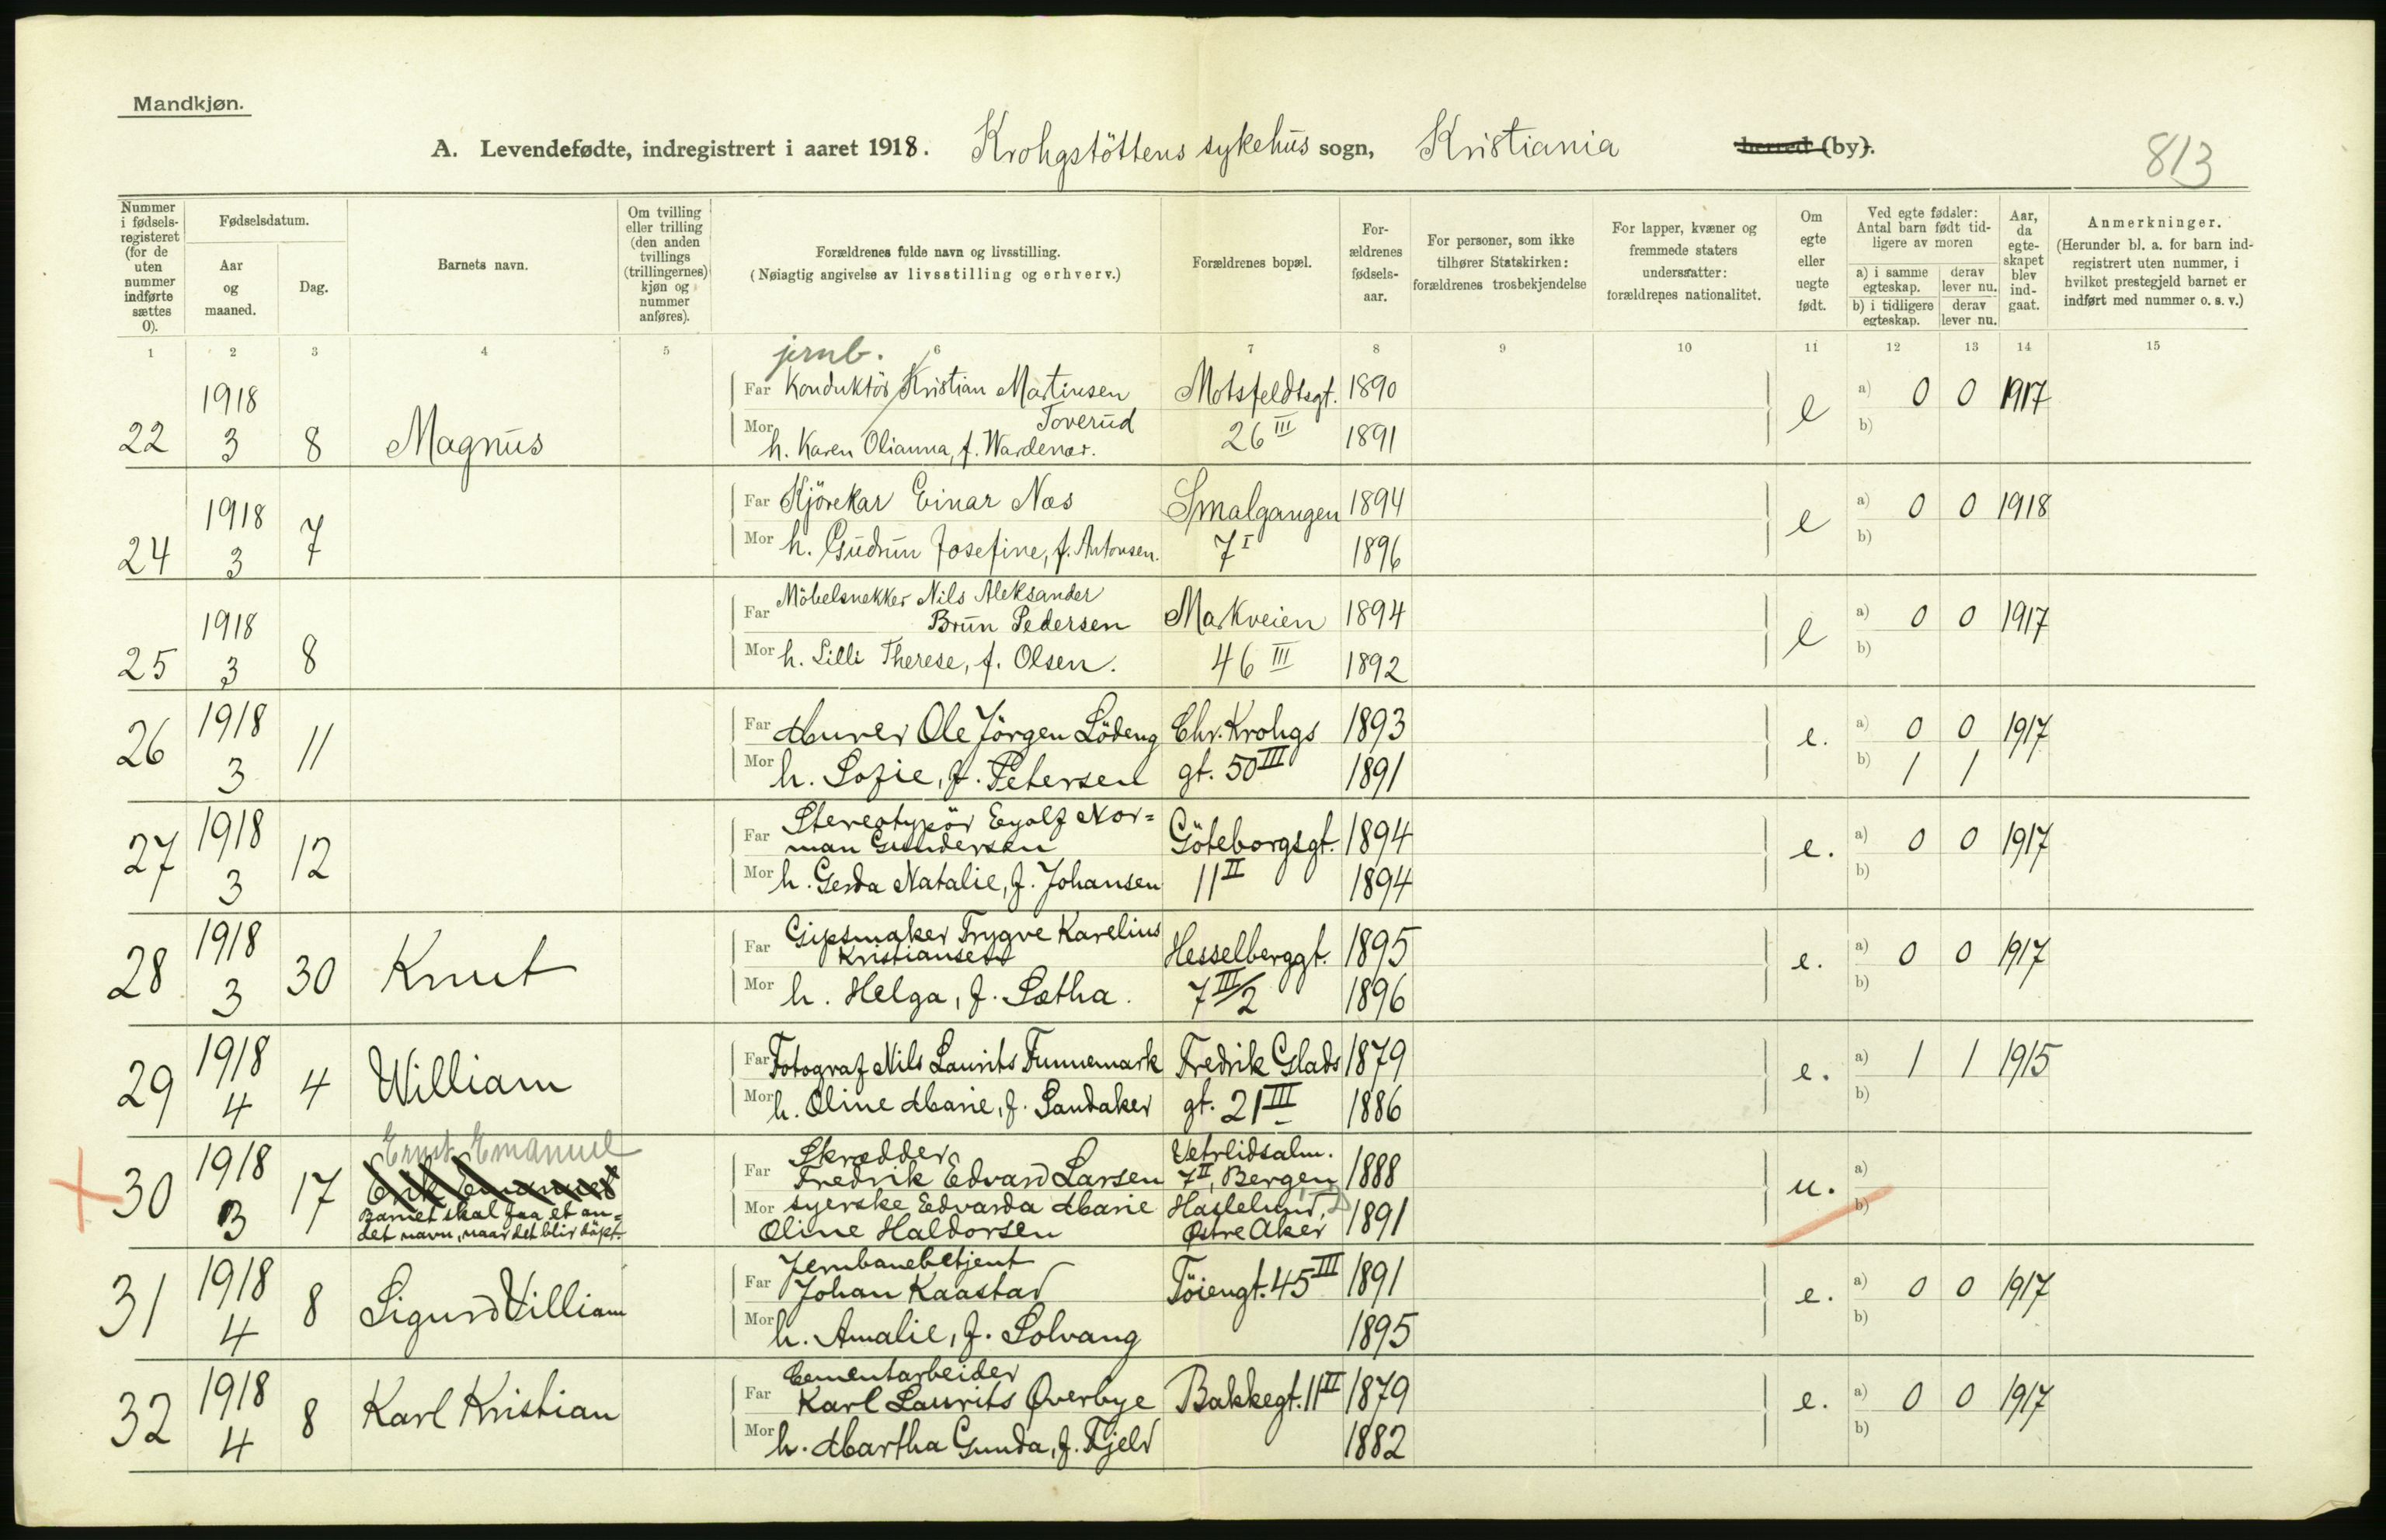 Mandkjøn.
A. Levendefødte, indregistrert i aaret 1918. Krohgstöttens sykehus sogn, Kristiania herred (by).
813
Nummer i fødsels-registeret (for de uten nummer indførte sættes 0).
Fødselsdatum.
Aar og maaned.
Dag.
Barnets navn.
Om tvilling eller trilling (den anden tvillings (trillingernes) kjøn og nummer anføres).
Forældrenes fulde navn og livsstilling.
(Nøiagtig angivelse av livsstilling og erhverv.)
Forældrenes bopæl.
For-ældrenes fødsels-aar.
For personer, som ikke tilhører Statskirken: forældrenes trosbekjendelse
For lapper, kvæner og fremmede staters undersaatter: forældrenes nationalitet.
Om egte eller uegte født.
Ved egte fødsler: Antal barn født tid-ligere av moren
a) i samme egteskap.
derav lever nu.
b) i tidligere egteskap.
derav lever nu.
Aar, da egte-skapet blev ind-gaat.
Anmerkninger.
(Herunder bl. a. for barn ind-registrert uten nummer, i hvilket prestegjeld barnet er indført med nummer o. s. v.)
1 2 3 4 5 6 7 8 9 10 11 12 13 14 15
jernb.
22 1918 3 8 Magnus
Far Konduktör Kristian Martinsen Toverud Motsfeldtsgt. 1890
Mor h. Karen Olianna, f. Wardenær. 26 III 1891
e a) 0 0 1917
b)
24 1918 3 7
Far Kjörekar Einar Næs Smalgangen 1894
Mor h. Gudrun Josefine, f. Antonsen. 7 I 1896
e a) 0 0 1918
b)
25 1918 3 8
Far Möbelsnekker Nils Aleksander Brun Pedersen Markveien 1894
Mor h. Lilli Therese, f. Olsen. 46 III 1892
e a) 0 0 1917
b)
26 1918 3 11
Far Murer Ole Jörgen Lödeng Chr. Krohgs 1893
Mor h. Sofie, f. Petersen gt. 50 III 1891
e. a) 0 0 1917
b) 1 1
27 1918 3 12
Far Stereotypör Eyolf Nor=
man Gundersen Göteborgsgt. 1894
Mor h. Gerda Natalie, f. Johansen 11 II 1894
e. a) 0 0 1917
b)
28 1918 3 30 Knut
Far Gipsmaker Trygve Karelius
Kristiansen Hesselberggt. 1895
Mor h. Helga, f. Sætha. 7 III/2 1896
e. a) 0 0 1917
b)
29 1918 4 4 William
Far Fotograf Nils Laurits Funnemark Fredrik Glads 1879
Mor h. Oline Marie, f. Sandaker gt. 21 III 1886
e. a) 1 1 1915
b)
30 1918 3 17 Ernst Emanuel
Erik Emanuel
Barnet skal faa et an=
det navn, naar det blir döpt.
Far Skrædder
Fredrik Edvard Larsen Vetrlidsalm. 7 II, Bergen 1888
Mor syerske Edvarda Marie
Oline Haldorsen Haslelund, Østre Aker 1891
u. a)
b)
31 1918 4 8 Sigurd William
Far Jernbanebetjent
Johan Kaastad Töiengt. 45 III 1891
Mor h. Amalie, f. Solvang 1895
e. a) 0 0 1917
b)
32 1918 4 8 Karl Kristian
Far Cementarbeider
Karl Laurits Øverbye Bakkegt. 11 II 1879
Mor h. Martha Gunda, f. Fjeld 1882
e. a) 0 0 1917
b)